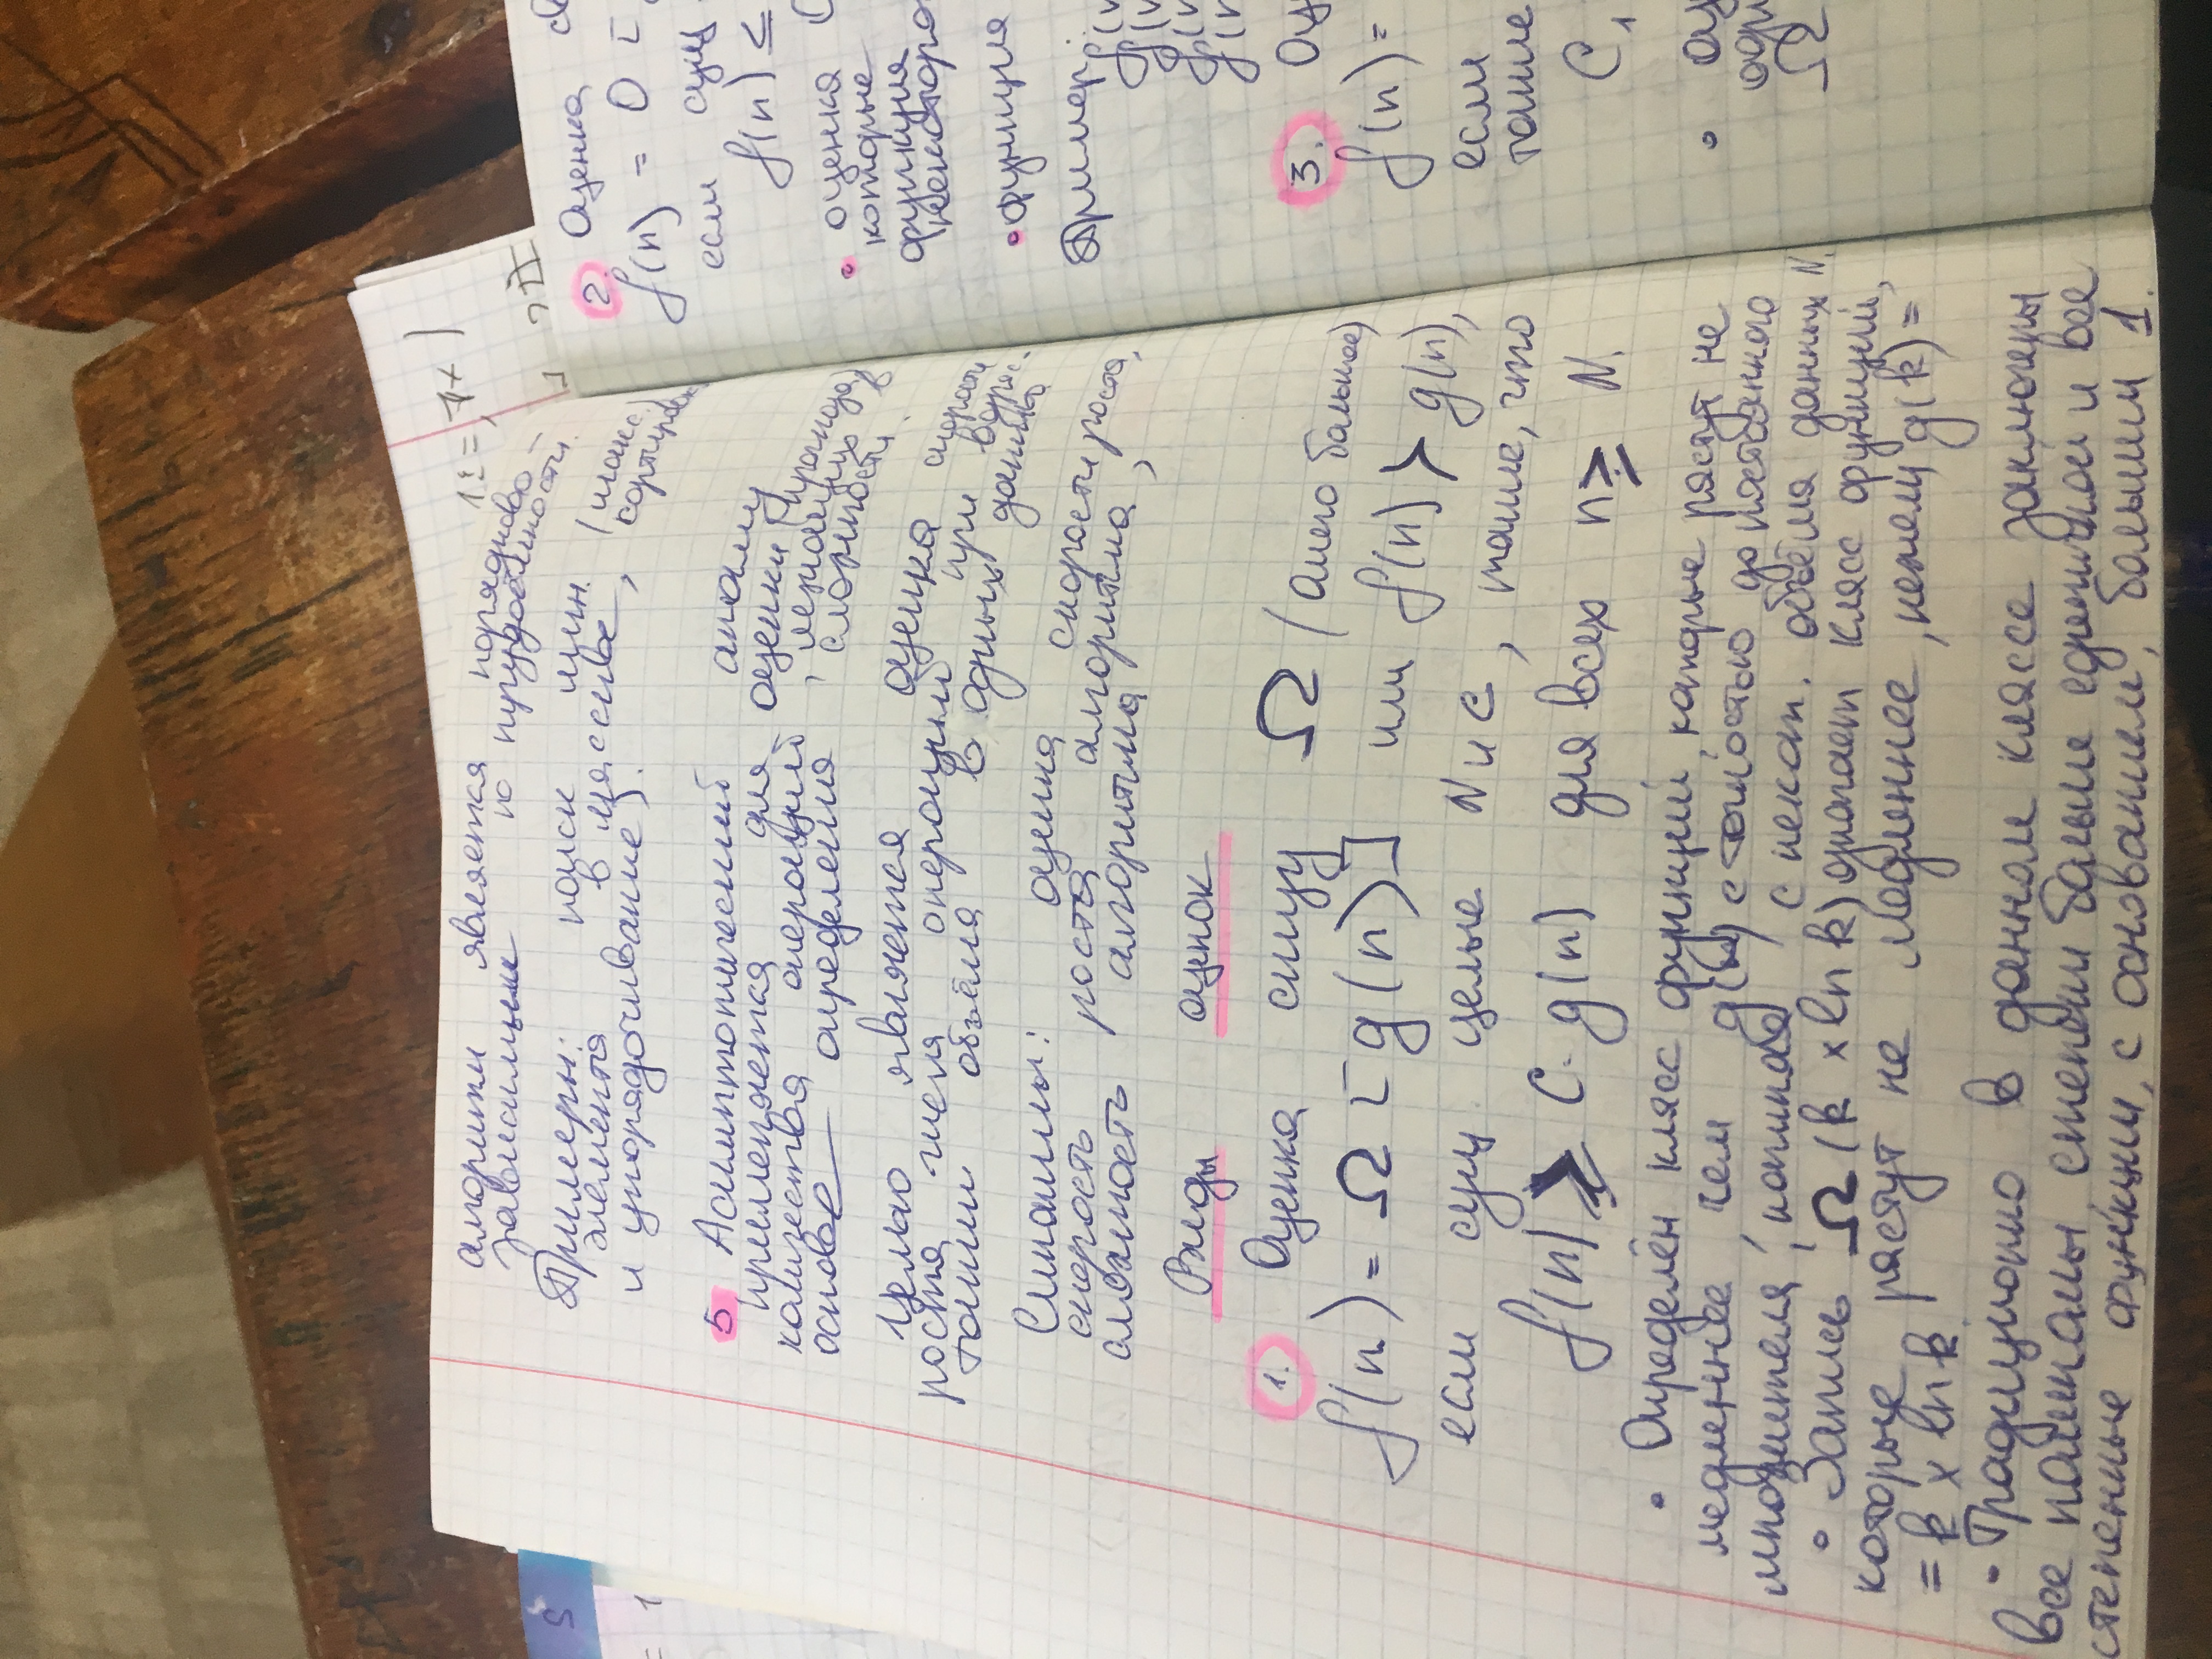 алгоритм является порядково-
зависимым по трудоёмкости.
Примеры: поиск мин. (макс.)
элемента в массиве, сортировка
и упорядочивание).
5. Асимптотический анализ
применяется для оценки (прогноза)
количества операций, лежащих в
основе определения сложности.
Целью является оценка скорости
роста числа операций при возрас-
тании объёма входных данных
Синонимы: оценка скорости роста,
скорость роста алгоритма,
сложность алгоритма
Виды оценок
1. Оценка снизу Ω (омега большое)
f(n) = Ω [g(n)] или f(n) ≻ g(n),
если сущ. целые N и C, такие, что
f(n) ⩾ C · g(n) для всех n ⩾ N.
• Определён класс функций, которые растут не
медленнее, чем g(n) с точностью до постоянного
множителя, начиная с некот. объёма данных N.
• Запись Ω (k × ln k) означает класс функций,
которые растут не медленнее, нежели g(k) =
= k × ln k.
• Традиционно в данном классе заключены
все полиномы, степени больше единичной и все
степенные функции, с основанием, большим 1.
2. Оценка св
f(n) = O [
если сущ
f(n) ≤
• оценка
которые
функция
некоторо
• функция
Пример:
f(n
f(n
f(n
f(n
3. Оц
f(n) =
если
такие
C₁
• оц
одн
Ω
5
= 1